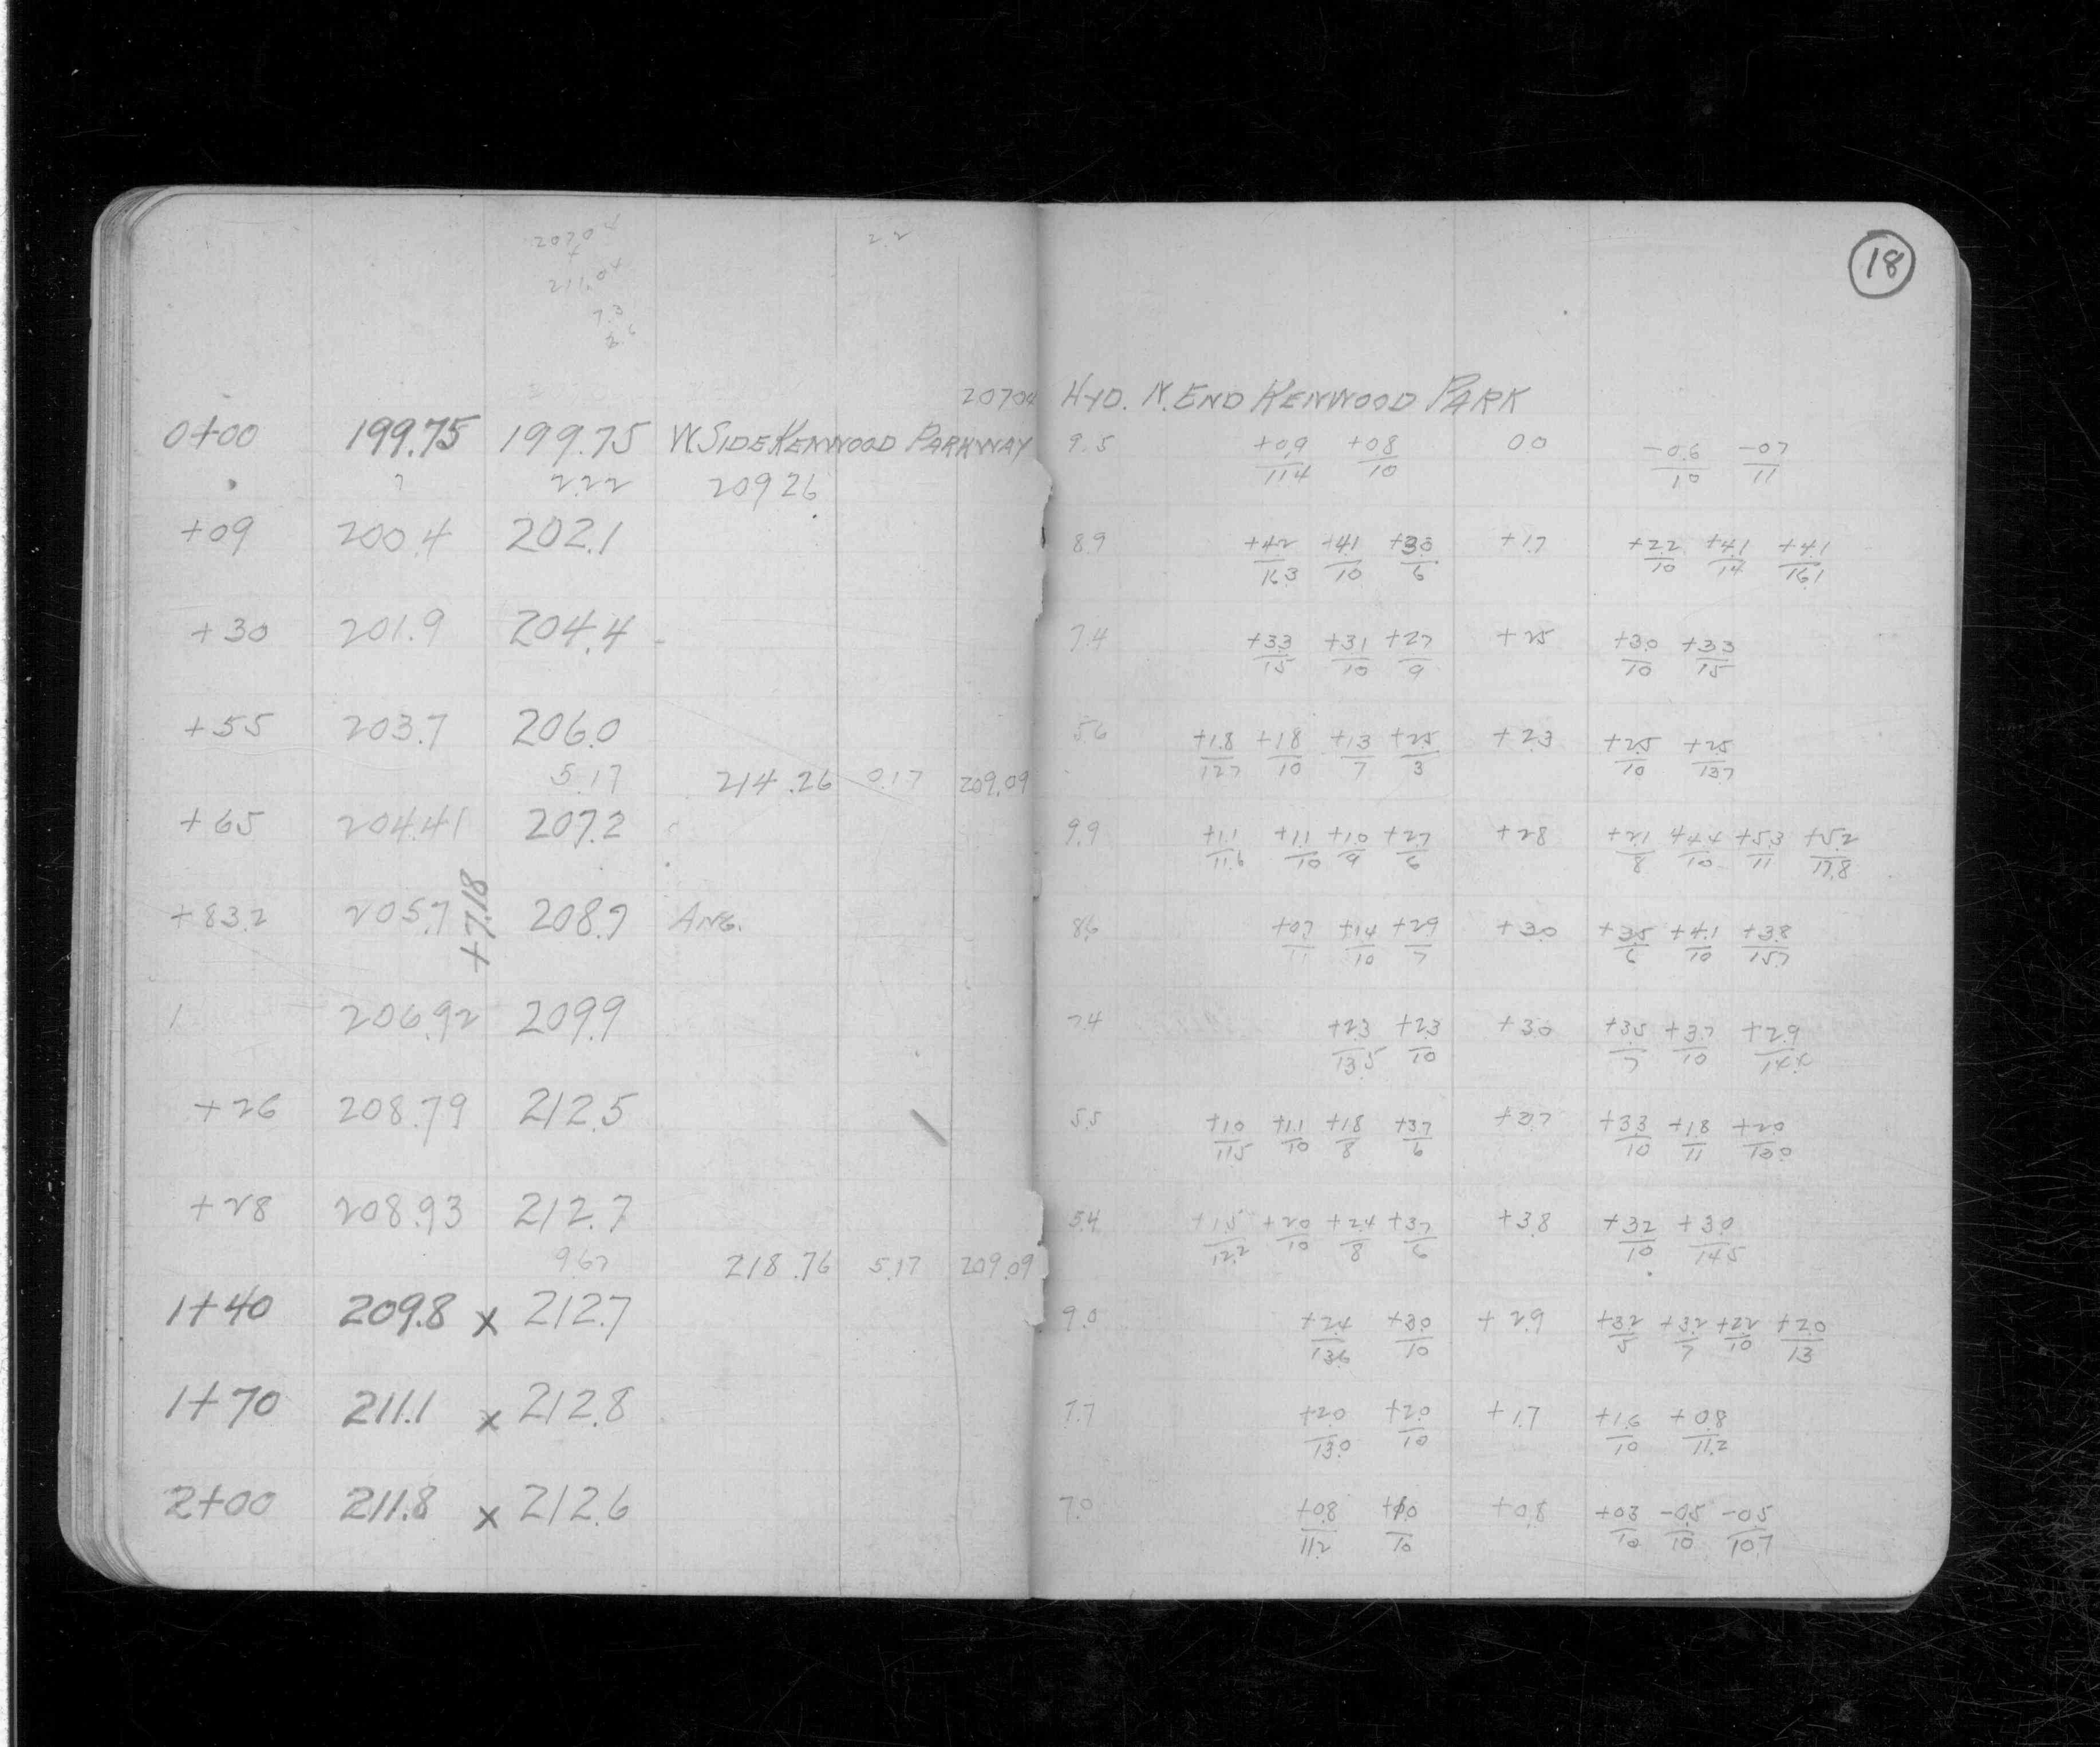 18
207.04
2.2
211.04
7.3
3.6
20704 HYD. N. END KENWOOD PARK
0+00 199.75 199.75 W. SIDE KENWOOD PARKWAY 9.5 +0.9/11.4 +0.8/10 0.0 -0.6/10 -0.7/11
2.22 209 26
+09 200.4 202.1 8.9 +4.2/16.3 +4.1/10 +3.0/6 +1.7 +2.2/10 +4.1/14 +4.1/16.1
+30 201.9 204.4 7.4 +3.3/15 +3.1/10 +2.7/9 +2.5 +3.0/10 +3.3/15
+55 203.7 206.0 5.6 +1.8/12.7 +1.8/10 +1.3/7 +2.5/3 +2.3 +2.5/10 +2.5/13.7
5.17 214.26 0.17 209.09
+65 204.41 207.2 9.9 +1.1/11.6 +1.1/10 +1.0/9 +2.7/6 +2.8 +2.1/8 +4.4/10 +5.3/11 +5.2/17.8
+83.2 205.7 +7.18 208.7 ANG. 8.6 +0.7/11 +1.4/10 +2.9/7 +3.0 +3.5/6 +4.1/10 +3.8/15.7
1 206.92 209.9 7.4 +2.3/13.5 +2.3/10 +3.0 +3.5/7 +3.7/10 +2.9/14.4
+26 208.79 212.5 5.5 +1.0/11.5 +1.1/10 +1.8/8 +3.7/6 +3.7 +3.3/10 +1.8/11 +2.0/13.0
+28 208.93 212.7 5.4 +1.5/12.2 +2.0/10 +2.4/8 +3.7/6 +3.8 +3.2/10 +3.0/14.5
9.67 218.76 5.17 209.09
1+40 209.8 x 212.7 9.0 +2.4/13.6 +3.0/10 +2.9 +3.2/5 +3.2/7 +2.2/10 +2.0/13
1+70 211.1 x 212.8 7.7 +2.0/13.0 +2.0/10 +1.7 +1.6/10 +0.8/11.2
2+00 211.8 x 212.6 7.0 +0.8/11.2 +1.0/10 +0.8 +0.3/10 -0.5/10 -0.5/10.7